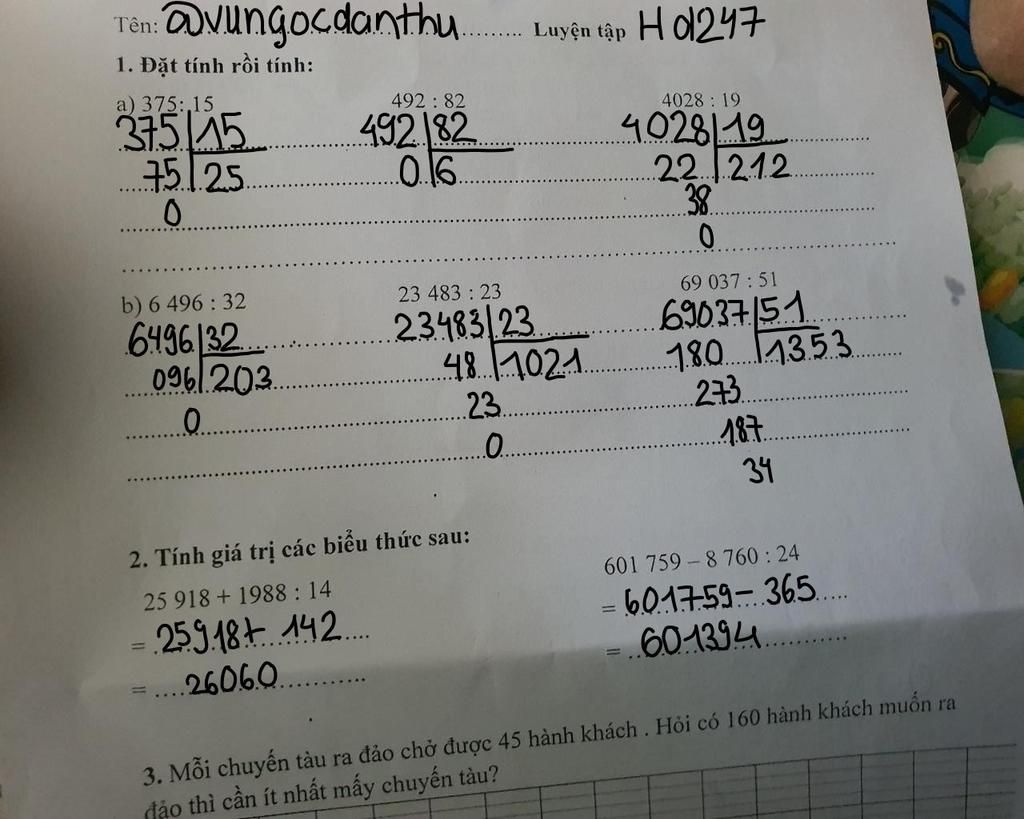 Tên: @vungocdanthu......... Luyện tập Hd247
1. Đặt tính rồi tính:
a) 375: 15 492 : 82 4028 : 19
375 15 492 82 4028 19
75 25 0 6 22 212
0 38
0
b) 6 496 : 32 23 483 : 23 69 037 : 51
6496 32 23483 23 69037 51
096 203 48 1021 180 1353
0 23 273
0 187
34
2. Tính giá trị các biểu thức sau:
25 918 + 1988 : 14 601 759 – 8 760 : 24
= 25918+ 142 = 601759- 365
= 26060 = 601394
3. Mỗi chuyến tàu ra đảo chở được 45 hành khách . Hỏi có 160 hành khách muốn ra
đảo thì cần ít nhất mấy chuyến tàu?